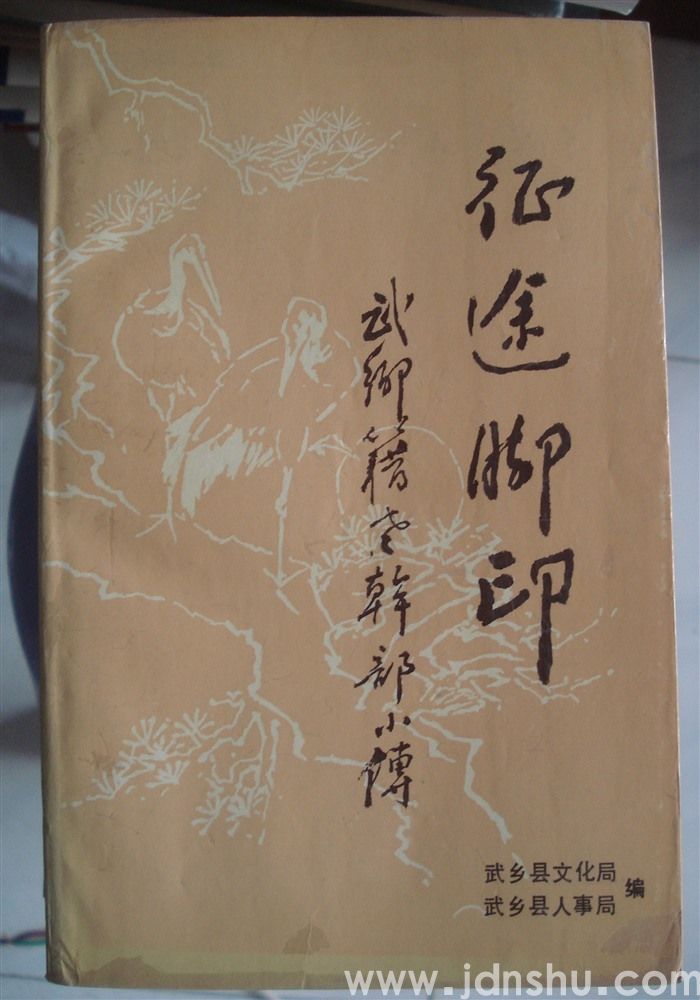 征途脚印
武鄉籍老幹部小傳
武乡县文化局
武乡县人事局
编
www.jdnshu.com